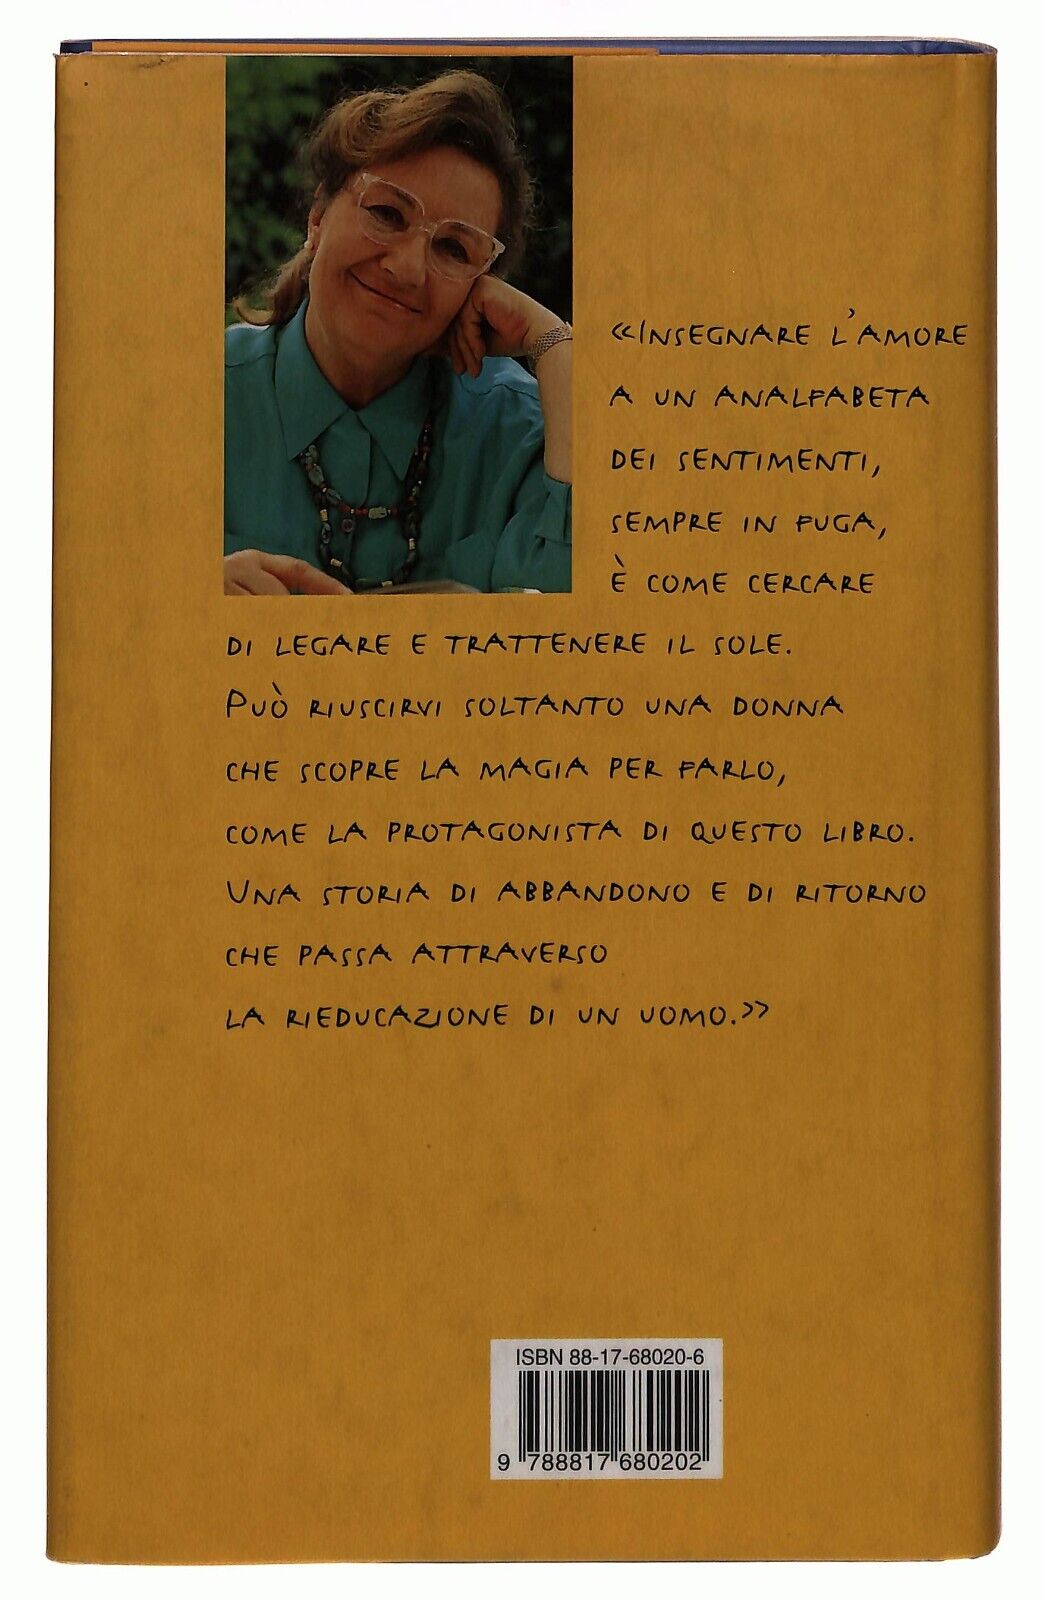 «Insegnare l'amore
a un analfabeta
dei sentimenti,
sempre in fuga,
è come cercare
di legare e trattenere il sole.
Può riuscirvi soltanto una donna
che scopre la magia per farlo,
come la protagonista di questo libro.
Una storia di abbandono e di ritorno
che passa attraverso
la rieducazione di un uomo.»
ISBN 88-17-68020-6
9 788817 680202